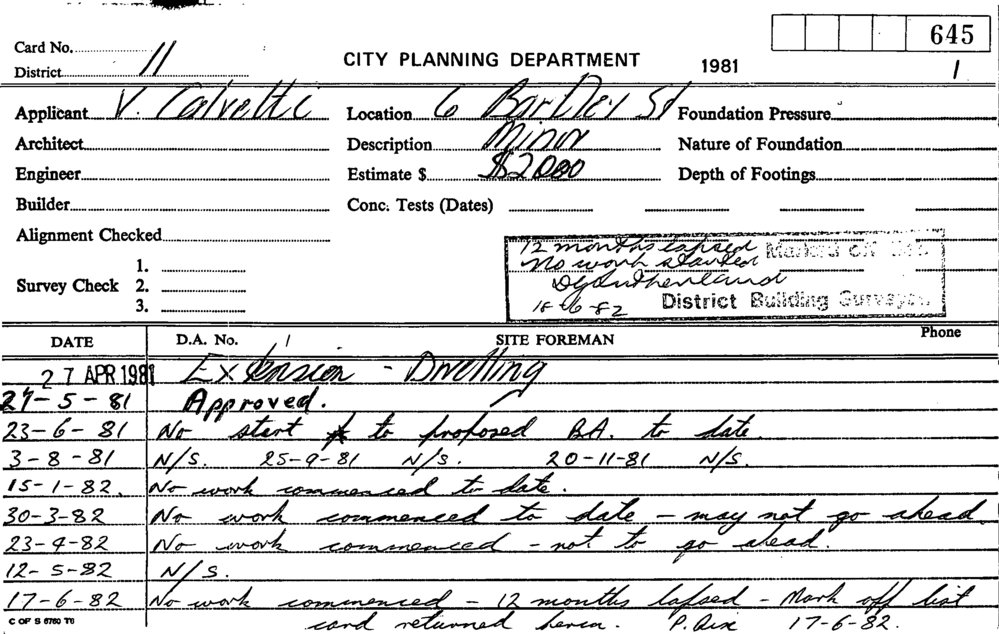 645
Card No. 11
CITY PLANNING DEPARTMENT 1981 1
District
Applicant V. Calvetti Location 6 Bartley St Foundation Pressure
Architect Description Minor Nature of Foundation
Engineer Estimate $ $2000 Depth of Footings
Builder Conc. Tests (Dates)
Alignment Checked
12 months lapsed Marked off
No work started
1.
Survey Check 2.
3.
18-6-82 District Building Surveyor
DATE D.A. No. SITE FOREMAN Phone
27 APR 1981 Extension - Dwelling
27-5-81 Approved.
23-6-81 No start to proposed B.A. to date
3-8-81 N/S. 25-9-81 N/S. 20-11-81 N/S.
15-1-82. No work commenced to date.
30-3-82 No work commenced to date - may not go ahead
23-4-82 No work commenced - not to go ahead.
12-5-82 N/S.
17-6-82 No work commenced - 12 months lapsed - Mark off list
C OF S 6760 T6 card returned herein. P. 17-6-82.